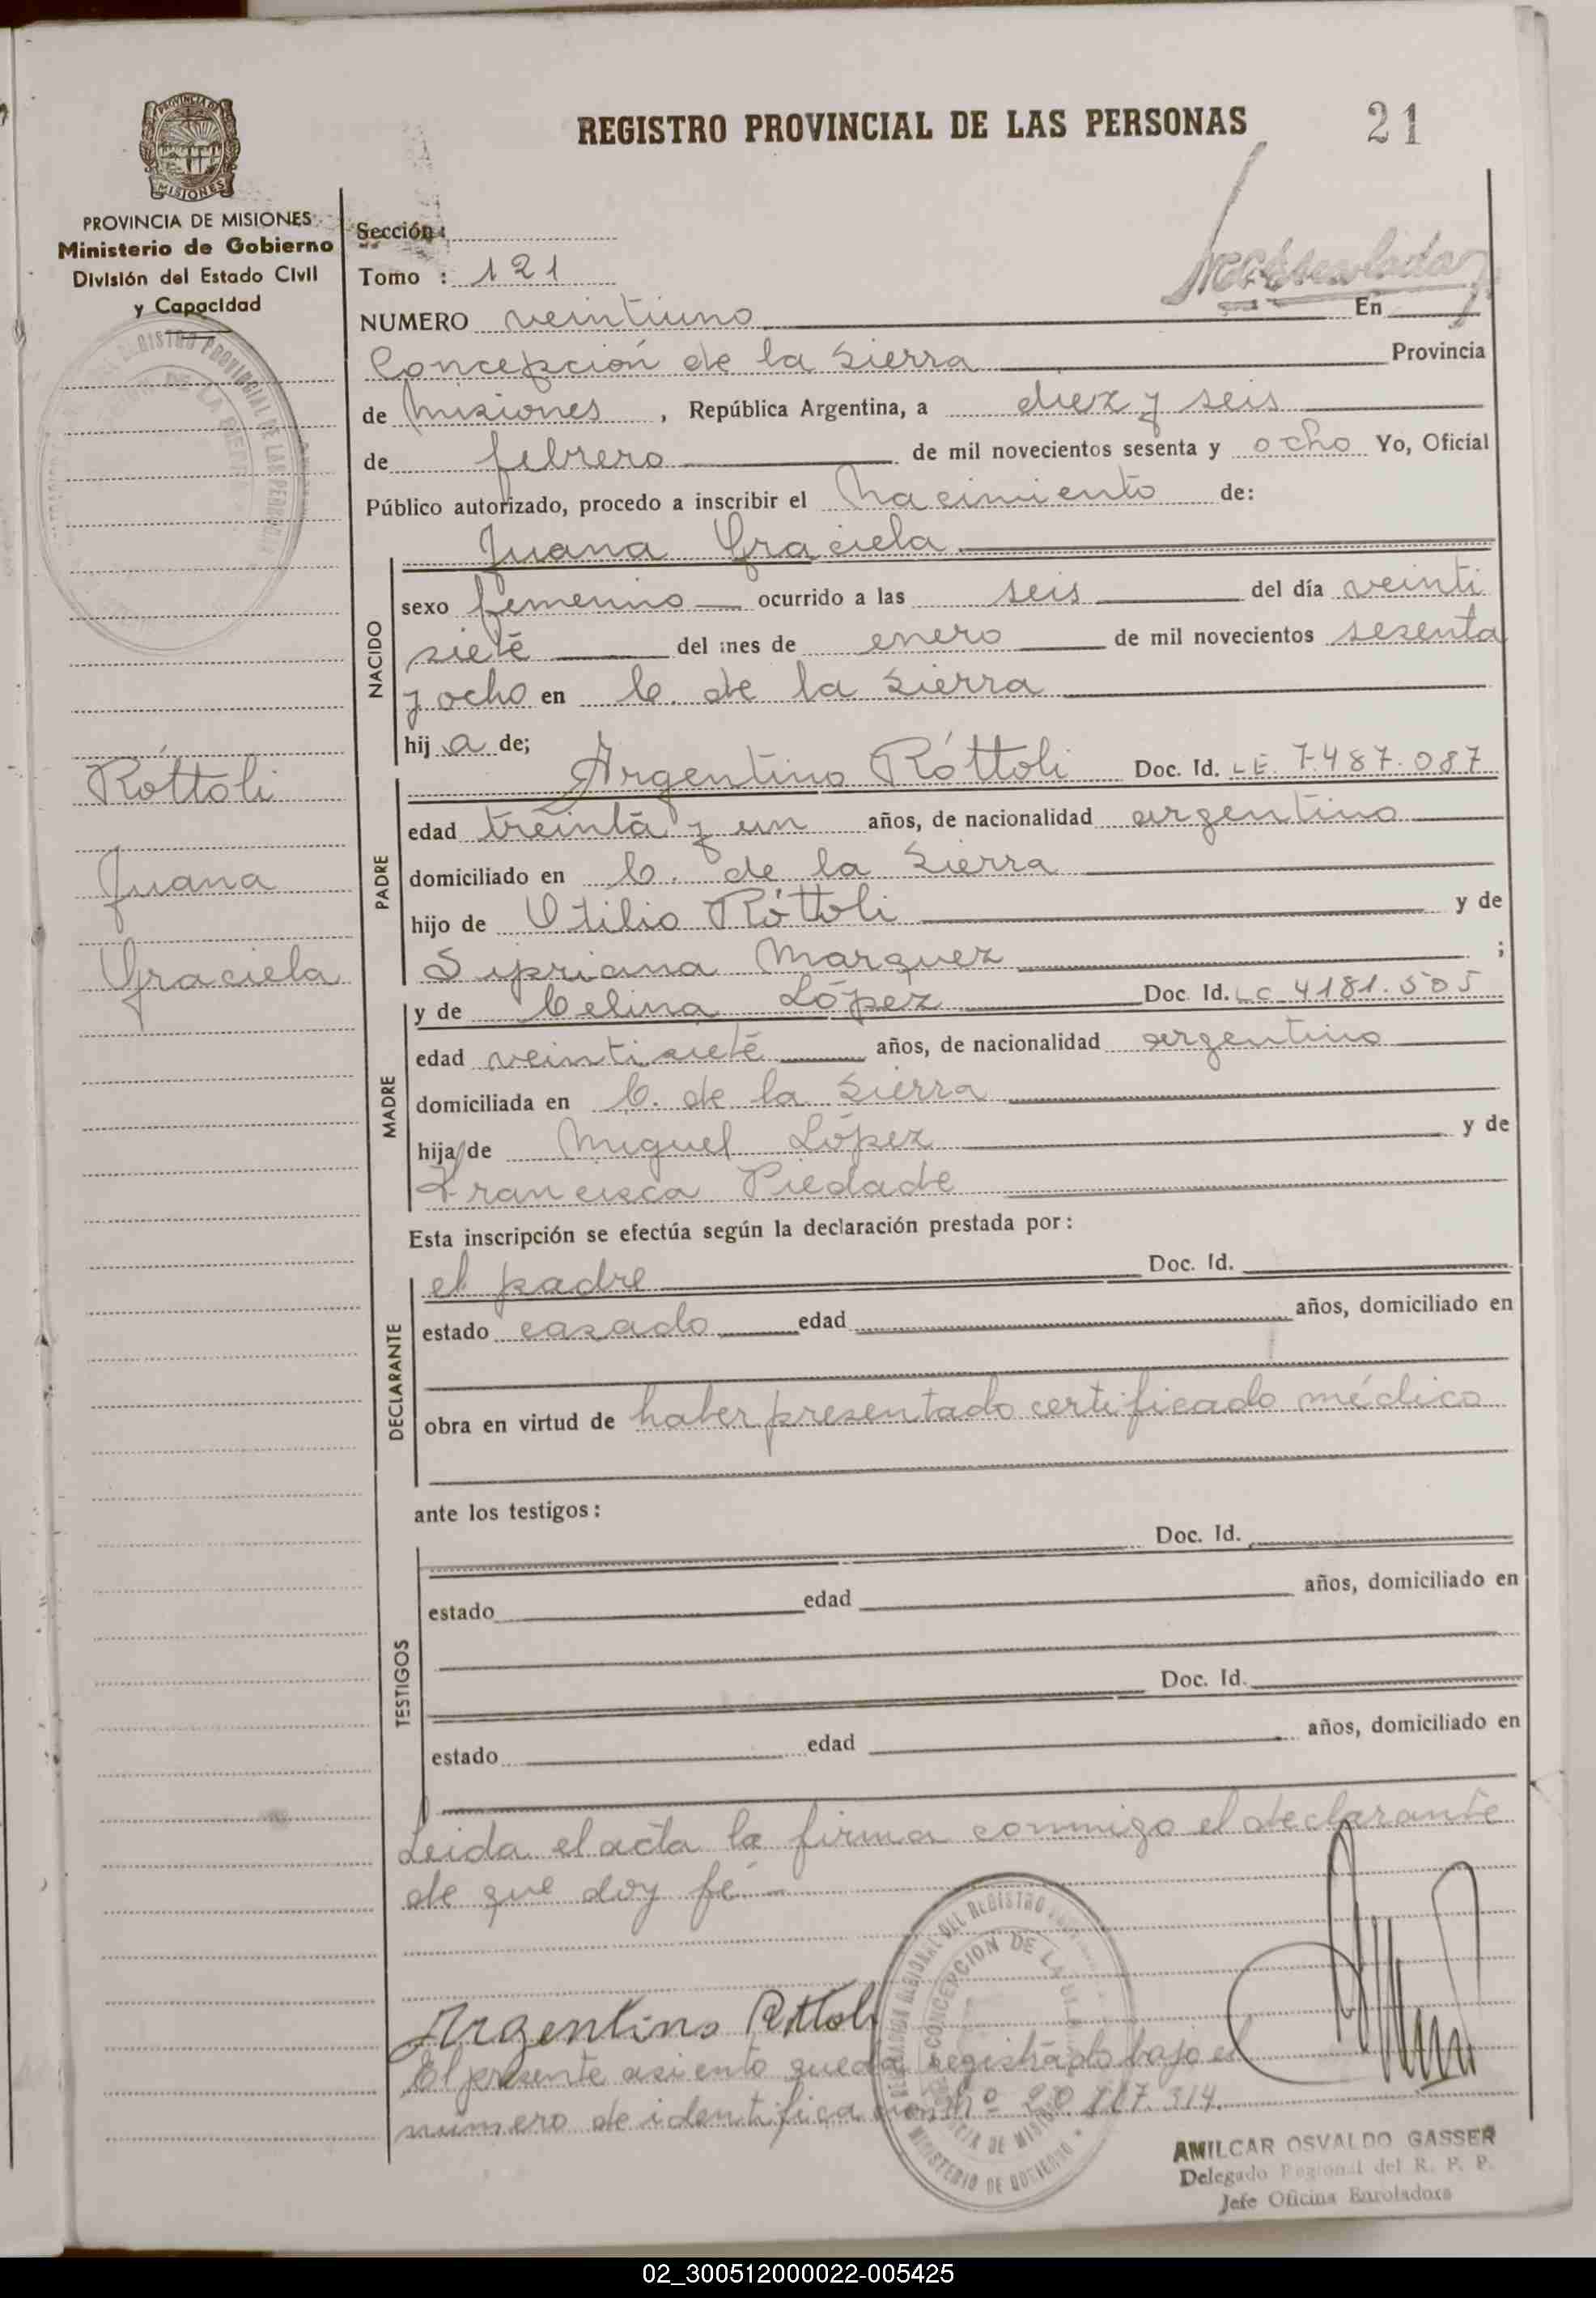 REGISTRO PROVINCIAL DE LAS PERSONAS 21
PROVINCIA DE MISIONES
Ministerio de Gobierno
División del Estado Civil
y Capacidad
Sección:
Tomo : 121
NUMERO veintiuno En
Concepción de la Sierra Provincia
de Misiones, República Argentina, a diez y seis
de febrero de mil novecientos sesenta y ocho Yo, Oficial
Público autorizado, procedo a inscribir el nacimiento de:
Juana Graciela
NACIDO
sexo femenino ocurrido a las seis del día veinti
siete del mes de enero de mil novecientos sesenta
y ocho en C. de la Sierra
hija de;
Róttoli
Juana
Graciela
PADRE
Argentino Róttoli Doc. Id. L E. 7.487.087
edad treinta y un años, de nacionalidad argentino
domiciliado en C. de la Sierra
hijo de Otilio Róttoli y de
Sipriana Marquez ;
MADRE
y de Celina López Doc. Id. L C 4181.505
edad veintisiete años, de nacionalidad argentino
domiciliada en C. de la Sierra
hija de Miguel López y de
Francisca Piedade
Esta inscripción se efectúa según la declaración prestada por:
DECLARANTE
el padre Doc. Id.
estado casado edad años, domiciliado en
obra en virtud de haber presentado certificado médico
ante los testigos:
TESTIGOS
Doc. Id.
estado edad años, domiciliado en
Doc. Id.
estado edad años, domiciliado en
Leida el acta la firma conmigo el declarante
de que doy fé
Argentino Rottoli
El presente asiento queda registrado bajo el
número de identificación Nº 20.117.314.
CONCEPCION DE LA
MINISTERIO DE GOBIERNO
AMILCAR OSVALDO GASSER
Delegado Regional del R. P. P.
Jefe Oficina Enroladora
02_300512000022-005425